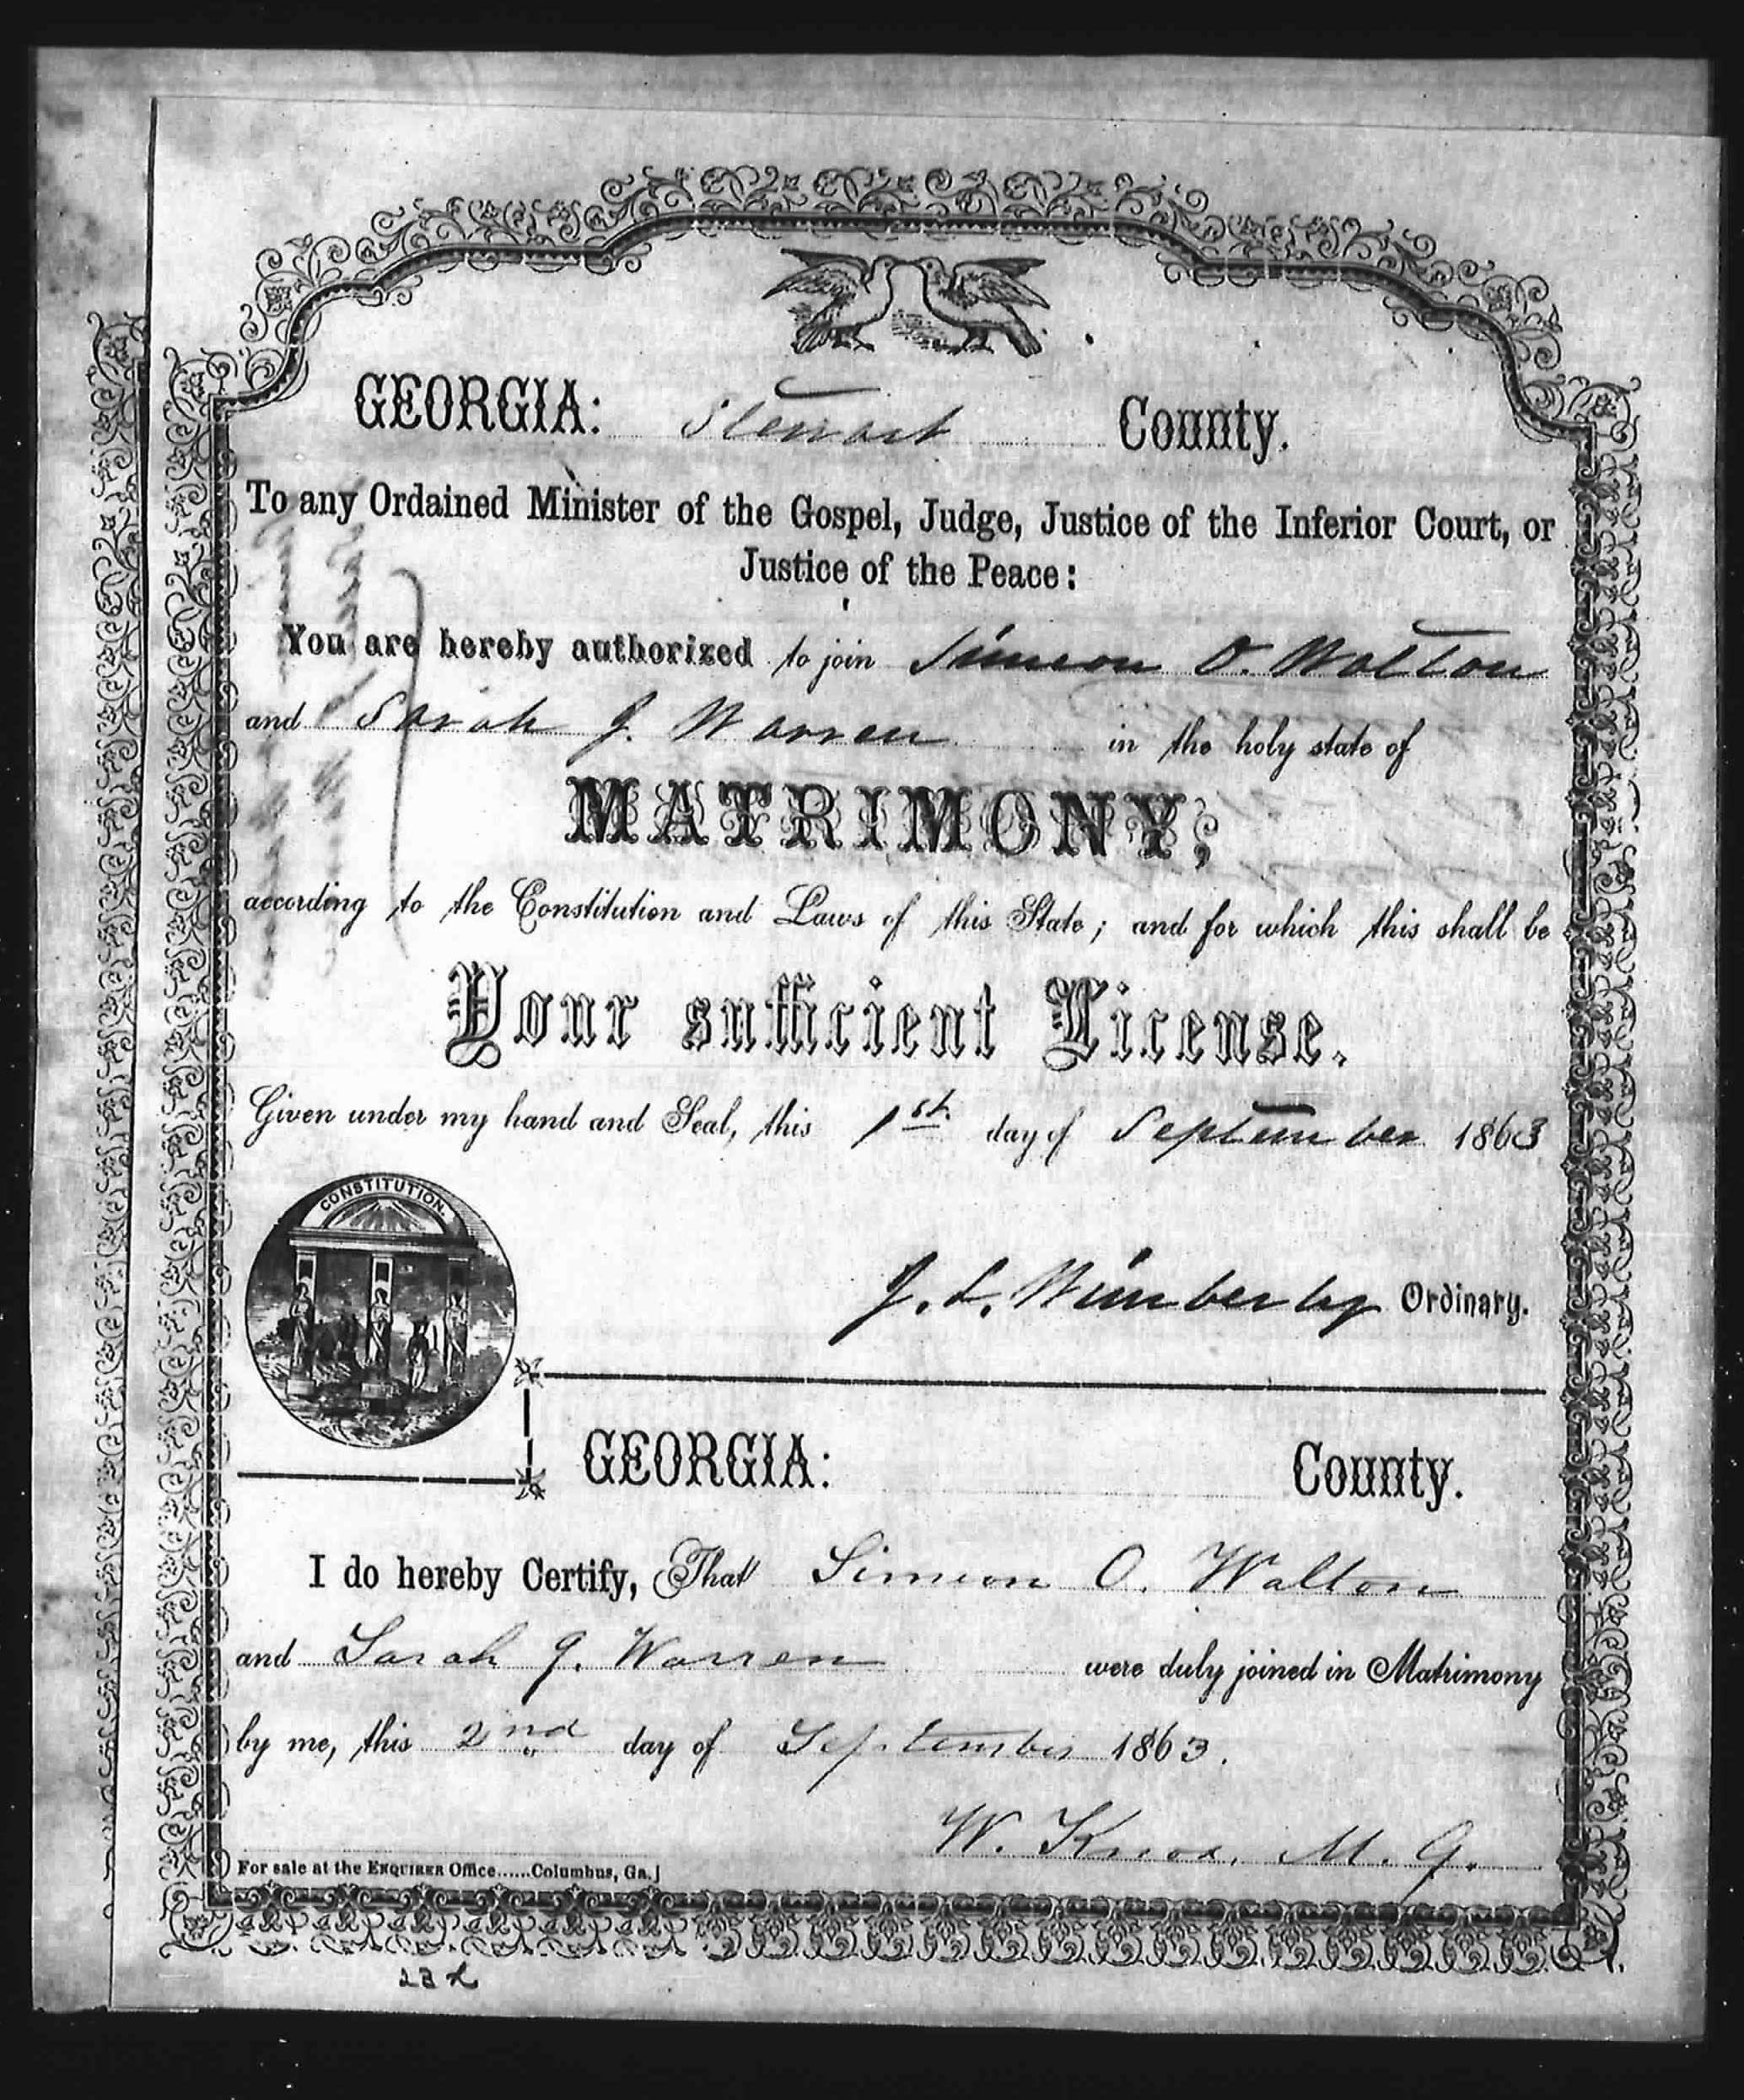 GEORGIA: Stewart County.
To any Ordained Minister of the Gospel, Judge, Justice of the Inferior Court, or
Justice of the Peace:
You are hereby authorized to join Simeon O. Walton
and Sarah J. Warren in the holy state of
MATRIMONY;
according to the Constitution and Laws of this State; and for which this shall be
Your sufficient License.
Given under my hand and Seal, this 1st day of September 1863
CONSTITUTION.
J. L. Wimberly Ordinary.
GEORGIA: County.
I do hereby Certify, That Simeon O. Walton
and Sarah J. Warren were duly joined in Matrimony
by me, this 2nd day of September 1863.
W. Knox, M. G.
For sale at the ENQUIRER Office.....Columbus, Ga.]